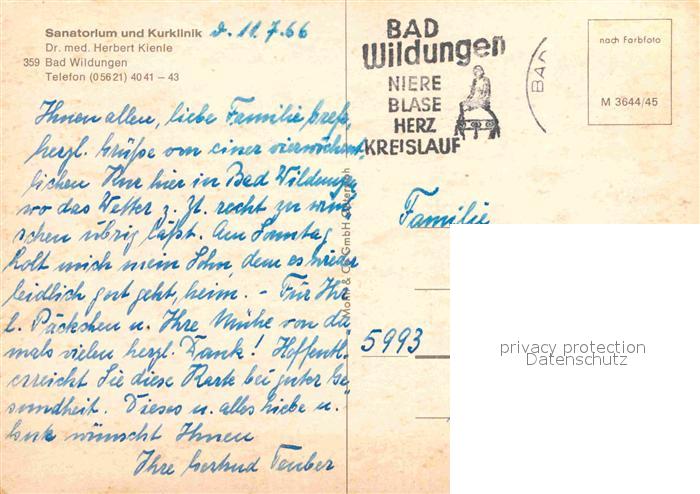 Sanatorium und Kurklinik d. 11.7.66
Dr. med. Herbert Kienle
359 Bad Wildungen
Telefon (05621) 4041 – 43
Ihnen allen, liebe Familie
herzl. Grüße von einer vierwöchent-
lichen Kur hier in Bad Wildungen
wo das Wetter z. Zt. recht zu wün-
schen übrig läßt. Am Sonntag
holt mich mein Sohn, dem es wieder
leidlich gut geht, heim. – Für Ihr
l. Päckchen u. Ihre Mühe von da-
mals vielen herzl. Dank! Hoffentl.
erreicht Sie diese Karte bei guter Ge-
sundheit. Dieses u. alles Liebe u.
Gute wünscht Ihnen
Ihre Gertrud Teuber
BAD
Wildungen
NIERE
BLASE
HERZ
KREISLAUF
BAD
nach Farbfoto
M 3644/45
Mohn & Co GmbH Gütersloh
Familie
5993
privacy protection
Datenschutz